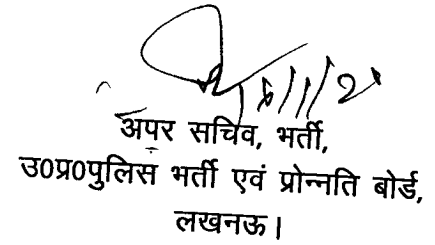 अपर सचिव, भर्ती,
उ०प्र०पुलिस भर्ती एवं प्रोन्नति बोर्ड,
लखनऊ।